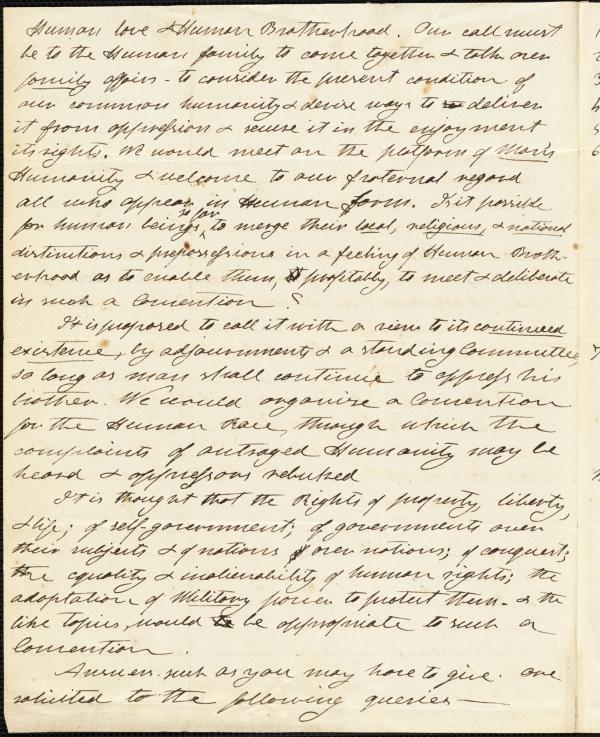 Human love & Human Brotherhood. Our call must
be to the Human family to come together & talk over
family affairs - to consider the present condition of
our common humanity & devise ways to deliver
it from oppression & secure it in the enjoyment
its rights. We would meet on the platform of Man's
Humanity & welcome to our fraternal regard
all who appear in Human form. Is it possible
for human beings, so far to merge their local, religious, & national
distinctions & prepossessions in a feeling of Human Broth-
erhood as to enable them, profitably, to meet & deliberate
in such a Convention?
It is proposed to call it with a view to its continued
existence, by adjournments & a standing Committee,
so long as man shall continue to oppress his
brother. We would organize a Convention
for the Human Race, through which the
complaints of outraged Humanity may be
heard & oppressors rebuked
It is thought that the Rights of property, liberty,
& life; of self government; of governments over
their subjects & of nations over nations; of conquest;
the equality & inalienability of human rights; the
adaptation of Military power to protect them - & the
like topics, would be appropriate to such a
Convention.
Answers such as you may have to give are
solicited to the following queries —
1
2
3
4
5
6
7